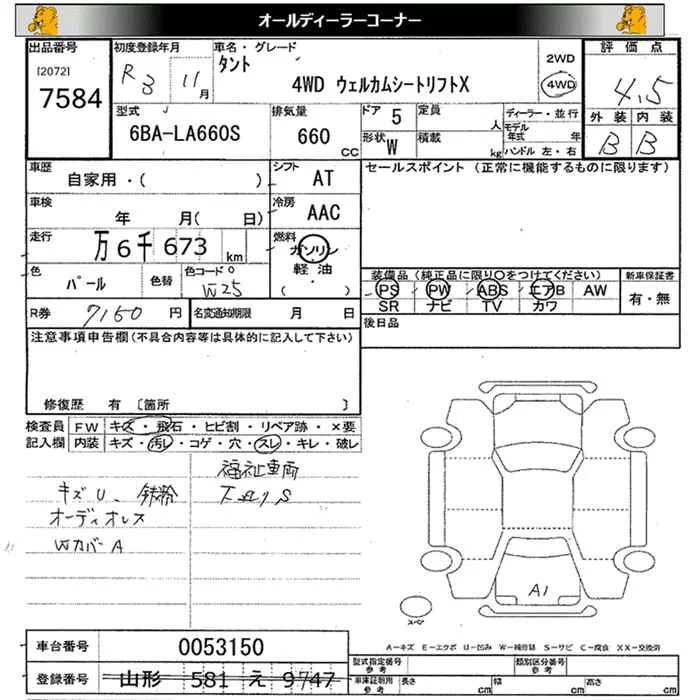 オールディーラーコーナー
出品番号
[2072]
7584
初度登録年月
R3 11月
車名・グレード
タント
4WD ウェルカムシートリフトX
2WD
4WD
評価点
4.5
外装 内装
B B
型式
6BA-LA660S
排気量
660 CC
ドア 5
形状 W
定員 人
積載 kg
ディーラー・並行
モデル年式 年
ハンドル 左・右
車歴
自家用・( )
シフト
AT
セールスポイント (正常に機能するものに限ります)
車検
年 月( 日)
冷房
AAC
走行
万6千673 km
燃料
ガソリン
軽油
( ・ )
色
パール
色替
色コード
W25
装備品 (純正品に限り○をつけてください)
PS PW ABS エアB AW
SR ナビ TV カワ
新車保証書
有・無
R券 7160 円
名変通知期限 月 日
後日品
注意事項申告欄 (不具合内容等は具体的に記入して下さい)
修復歴 有 〔箇所 〕
検査員記入欄
FW キズ・飛石・ヒビ割・リペア跡・×要
内装 キズ・汚レ・コゲ・穴・スレ・キレ・破レ
福祉車両
キズU、鉄粉
オーディオレス
Wカバー A
A1
スペア
A-キズ E-エクボ U-凹み W-補修跡 S-サビ C-腐食 XX-交換済
車台番号 0053150
登録番号 山形 581 え 9747
型式指定番号 参考
類別区分番号 参考
車庫証明用 参考 長さ cm 幅 cm 高さ cm